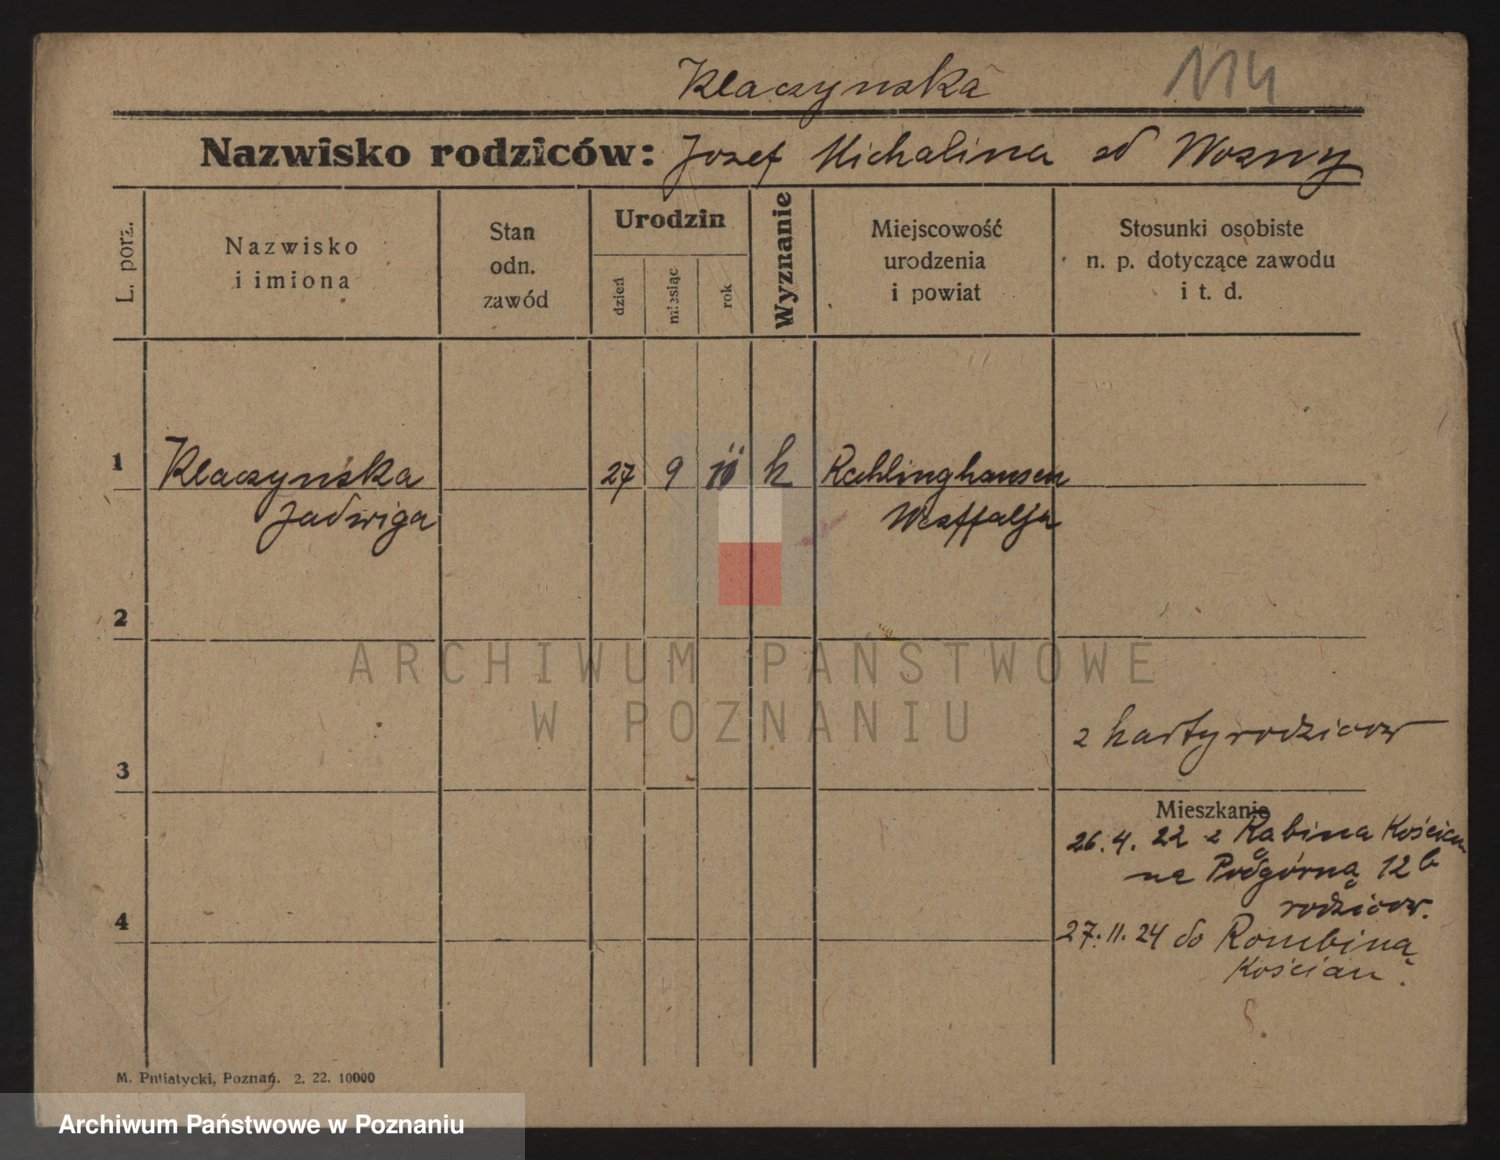 Klaczynska
114
Nazwisko rodziców: Jozef Michalina zd Wozny
L. porz.
Nazwisko
i imiona
Stan
odn.
zawód
Urodzin
dzień
miesiąc
rok
Wyznanie
Miejscowość
urodzenia
i powiat
Stosunki osobiste
n. p. dotyczące zawodu
i t. d.
1 Klaczyńska 27 9 k Recklinghausen
Jadwiga Westfalja
2
ARCHIWUM PAŃSTWOWE
W POZNANIU
z karty rodzicow
3
Mieszkanie
26. 4. 22 z Rąbina Kościan
na Podgórną 12 b
rodzicow.
4
27. 11. 24 do Rombina
Kościan.
M. Putiatycki, Poznań. 2. 22. 10000
Archiwum Państwowe w Poznaniu